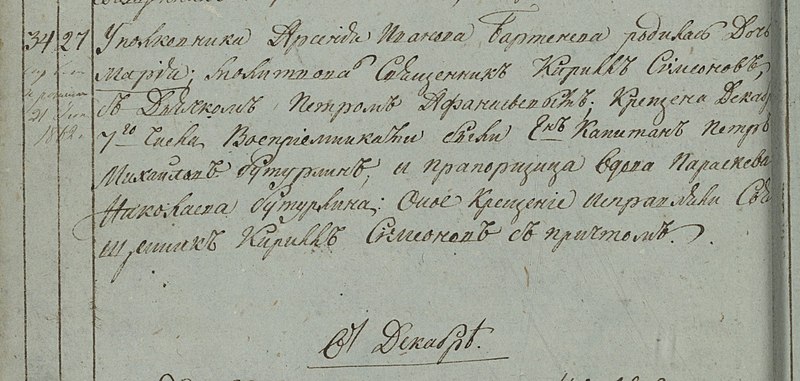 34 27 Уполковника Арсенія Иванова Бартенева родилась Дочь
Марія; молитвовалъ Священникъ Кириллъ Симеоновъ,
съ Дьячкомъ Петромъ Афанасьевымъ; Крещена Декабря
7го Числа Воспріемниками были Гнъ Капитанъ Петръ
Михайловъ Бутурлинъ; и прапорщица вдова Параскева
Николаева Бутурлина; Оное Крещеніе Исправляли Свя
щенникъ Кириллъ Симеоновъ съ причтомъ.
Декабрѣ.